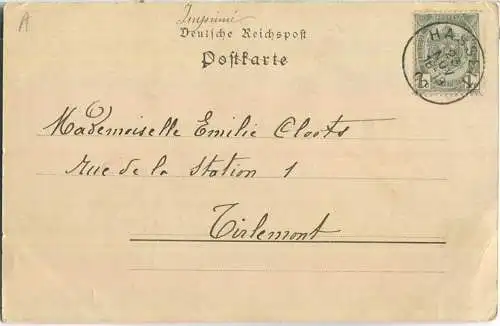 A
Imprimé
Deutsche Reichspost
Postkarte
HAL
1 1
Mademoiselle Emilie Cloots
Rue de la Station 1
Tirlemont